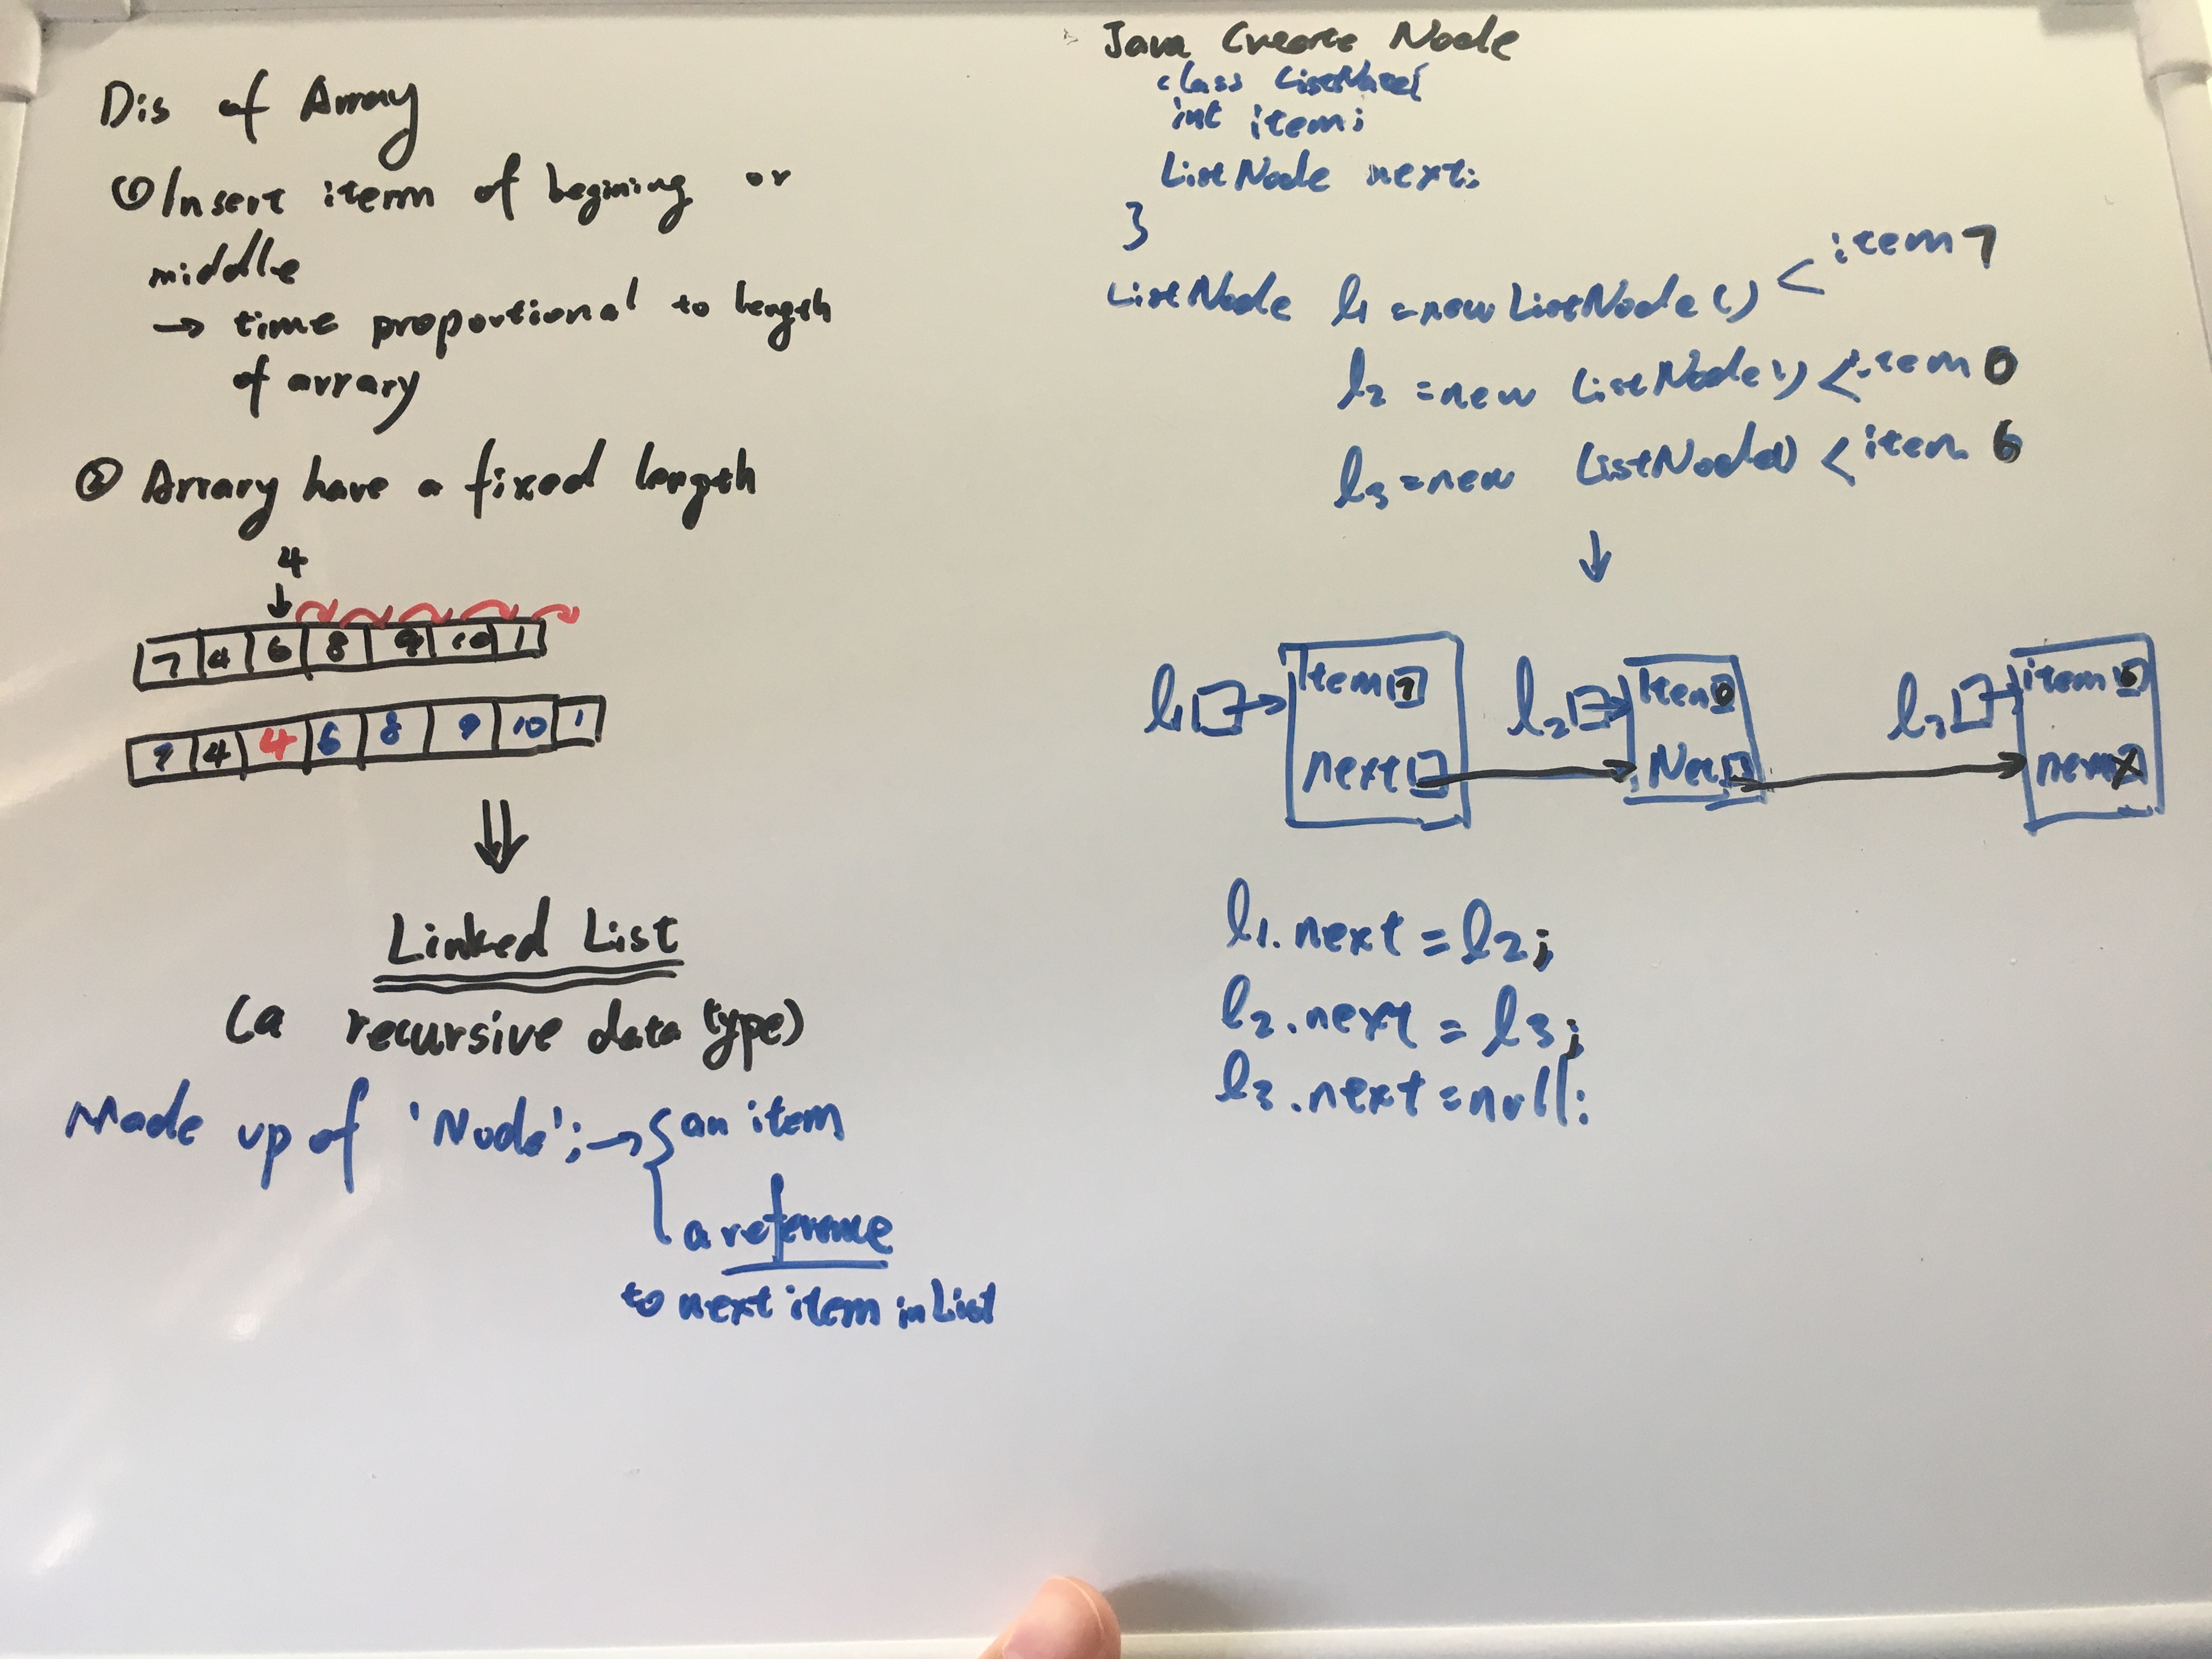 Dis of Array
① Insert iterm of begining or
middle
→ time proportional to length
of arrary
② Arrary have a fixed length
4
7 4 6 8 9 10 1
7 4 4 6 8 9 10 1
Linked List
(a recursive data type)
Made up of 'Node'; → { an item
a reference
to next item in List
Java Create Node
class ListNode{
int item;
ListNode next;
}
ListNode l1 = new ListNode () < item 7
l2 = new ListNode () < item 0
l3 = new ListNode() < item 6
l1 Item 7 l2 Item 0 l3 item 6
next next X
l1.next = l2;
l2.next = l3;
l3.next = null;